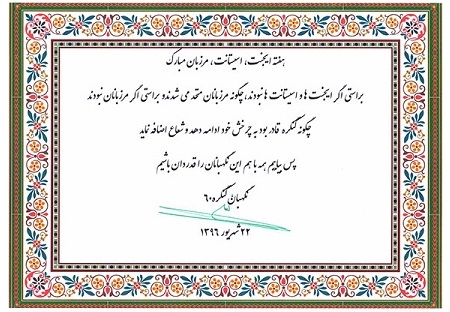 هفته ایجنت، اسیستانت، مرزبان مبارک
براستی اگر ایجنت ها و اسیستانت ها نبودند، چگونه مرزبانان متحد می شدند و براستی اگر مرزبانان نبودند
چگونه کنگره قادر بود به چرخش خود ادامه دهد و شعاع اضافه نماید
پس بیاییم همه با هم این نگهبانان را قدردان باشیم
نگهبان کنگره ۶۰
۲۲ شهریور ۱۳۹۶